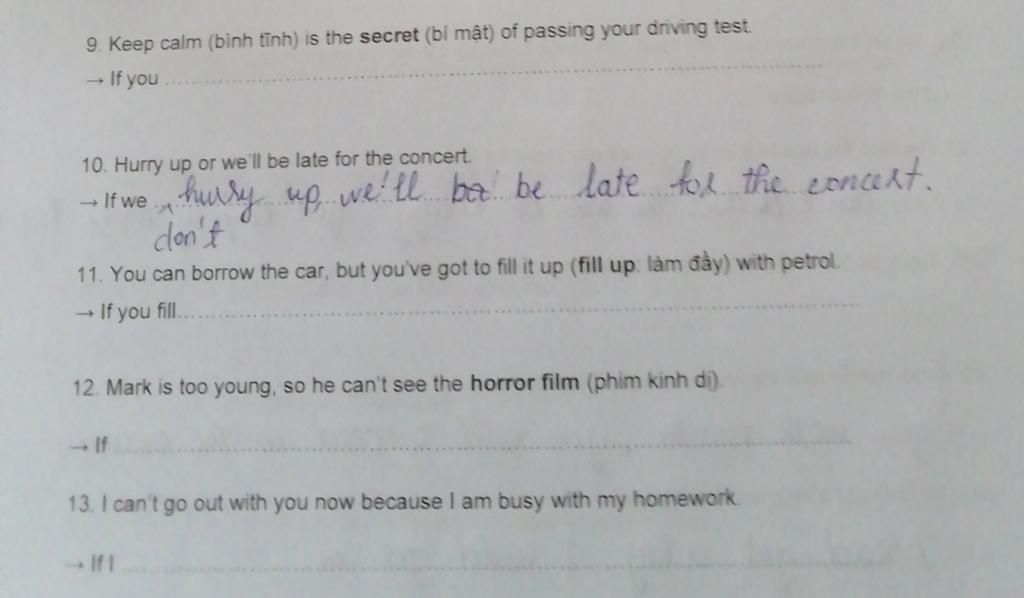 9. Keep calm (bình tĩnh) is the secret (bí mật) of passing your driving test.
→ If you ........................................................................
10. Hurry up or we'll be late for the concert.
→ If we hurry up, we'll be late for the concert.
don't
11. You can borrow the car, but you've got to fill it up (fill up: làm đầy) with petrol.
→ If you fill........................................................................
12. Mark is too young, so he can't see the horror film (phim kinh dị).
→ If ........................................................................
13. I can't go out with you now because I am busy with my homework.
→ If I ........................................................................